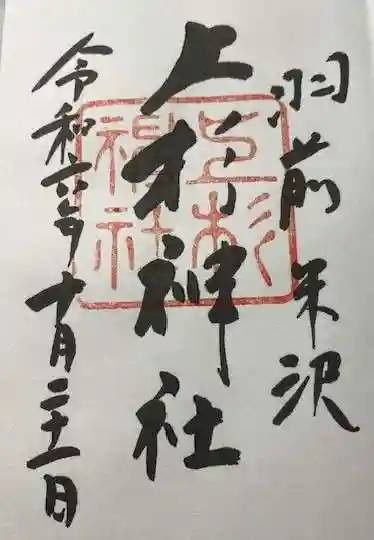 羽前米沢
上杉神社
令和六年十月二十一日
上杉神社